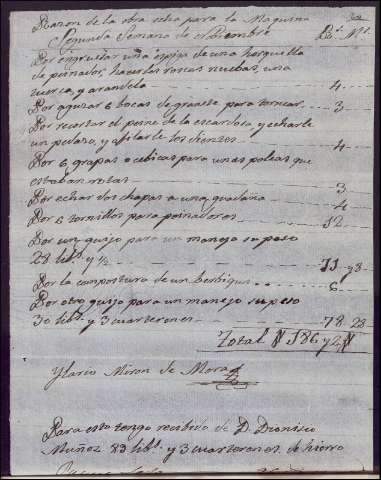 Razon de la obra echa para la Maquina
Segunda Semana de
Por engruesar una espiga de una horquilla
de peinador, hacerlas roscas nuebas, una
tuerca, y arandela 4
Por aguzar 6 bocas de granete para tornear 3
Por recortar el peine de la escardosa, y echarle
un pedazo, y afilarle los dientes 4
Por 6 grapas o cabicas para unas poleas que
estaban rotas 3
Por echar dos chapas a una guadana 4
Por 6 tornillos para peinadores 12
Por un quijo para un manejo su peso
28 lib.s y ½ 71 y 8
Por la compostura de un berbiqui 6
Por otro quijo para un manejo su peso
30 lib.s y 3 cuarterones 78 28
Total 186 y 2
Ylario Miron de Mora
Para esto tengo recibido de D. Dionisio
Muñoz 83 lib.s y 3 cuarterones de hierro